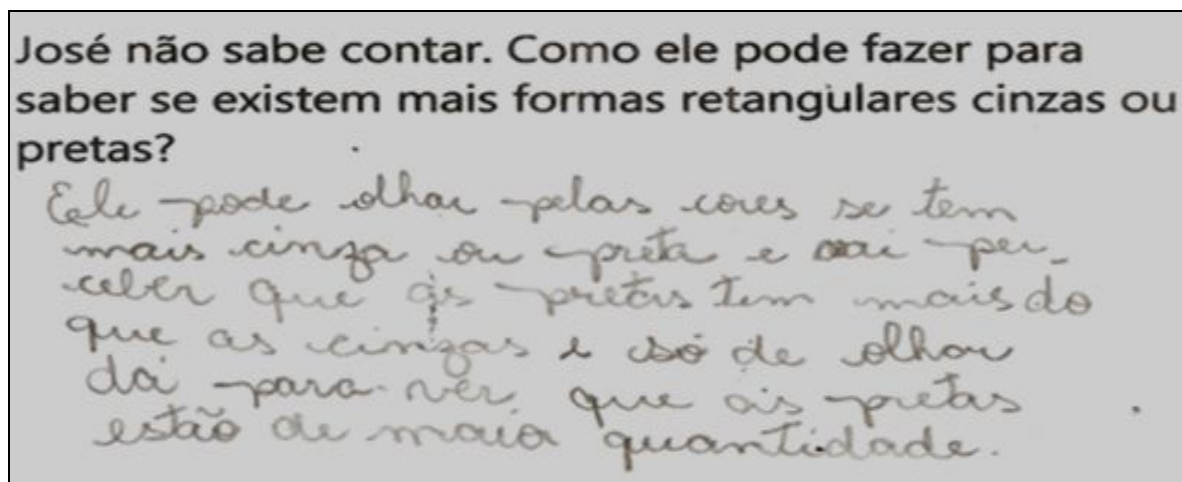 José não sabe contar. Como ele pode fazer para
saber se existem mais formas retangulares cinzas ou
pretas?
Ele pode olhar pelas cores se tem
mais cinza ou preta e vai per-
ceber que as pretas tem mais do
que as cinzas e só de olhar
dá para ver que as pretas
estão de maior quantidade.